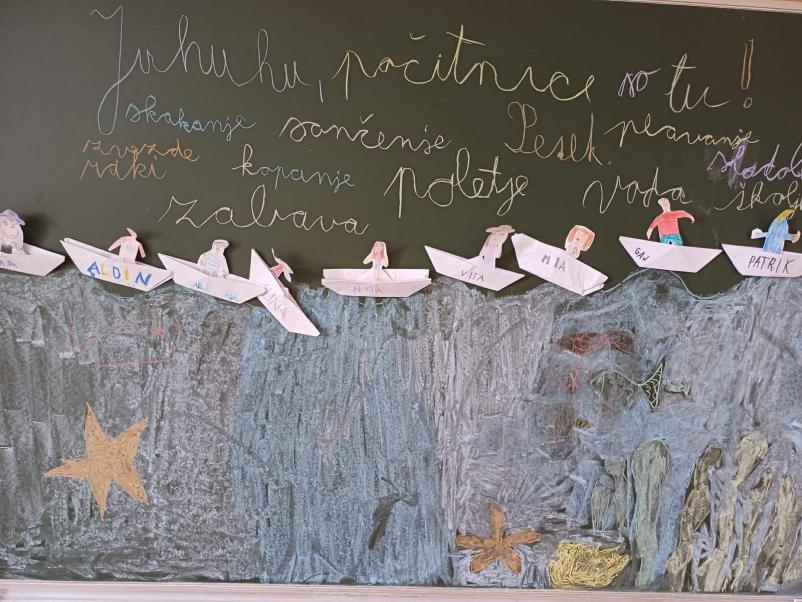 Juhuhu, počitnice so tu!
skakanje sončenje Pesek. plavanje
zvezde kopanje poletje voda
raki zabava
ALDIN VITA MIA GAJ PATRIK